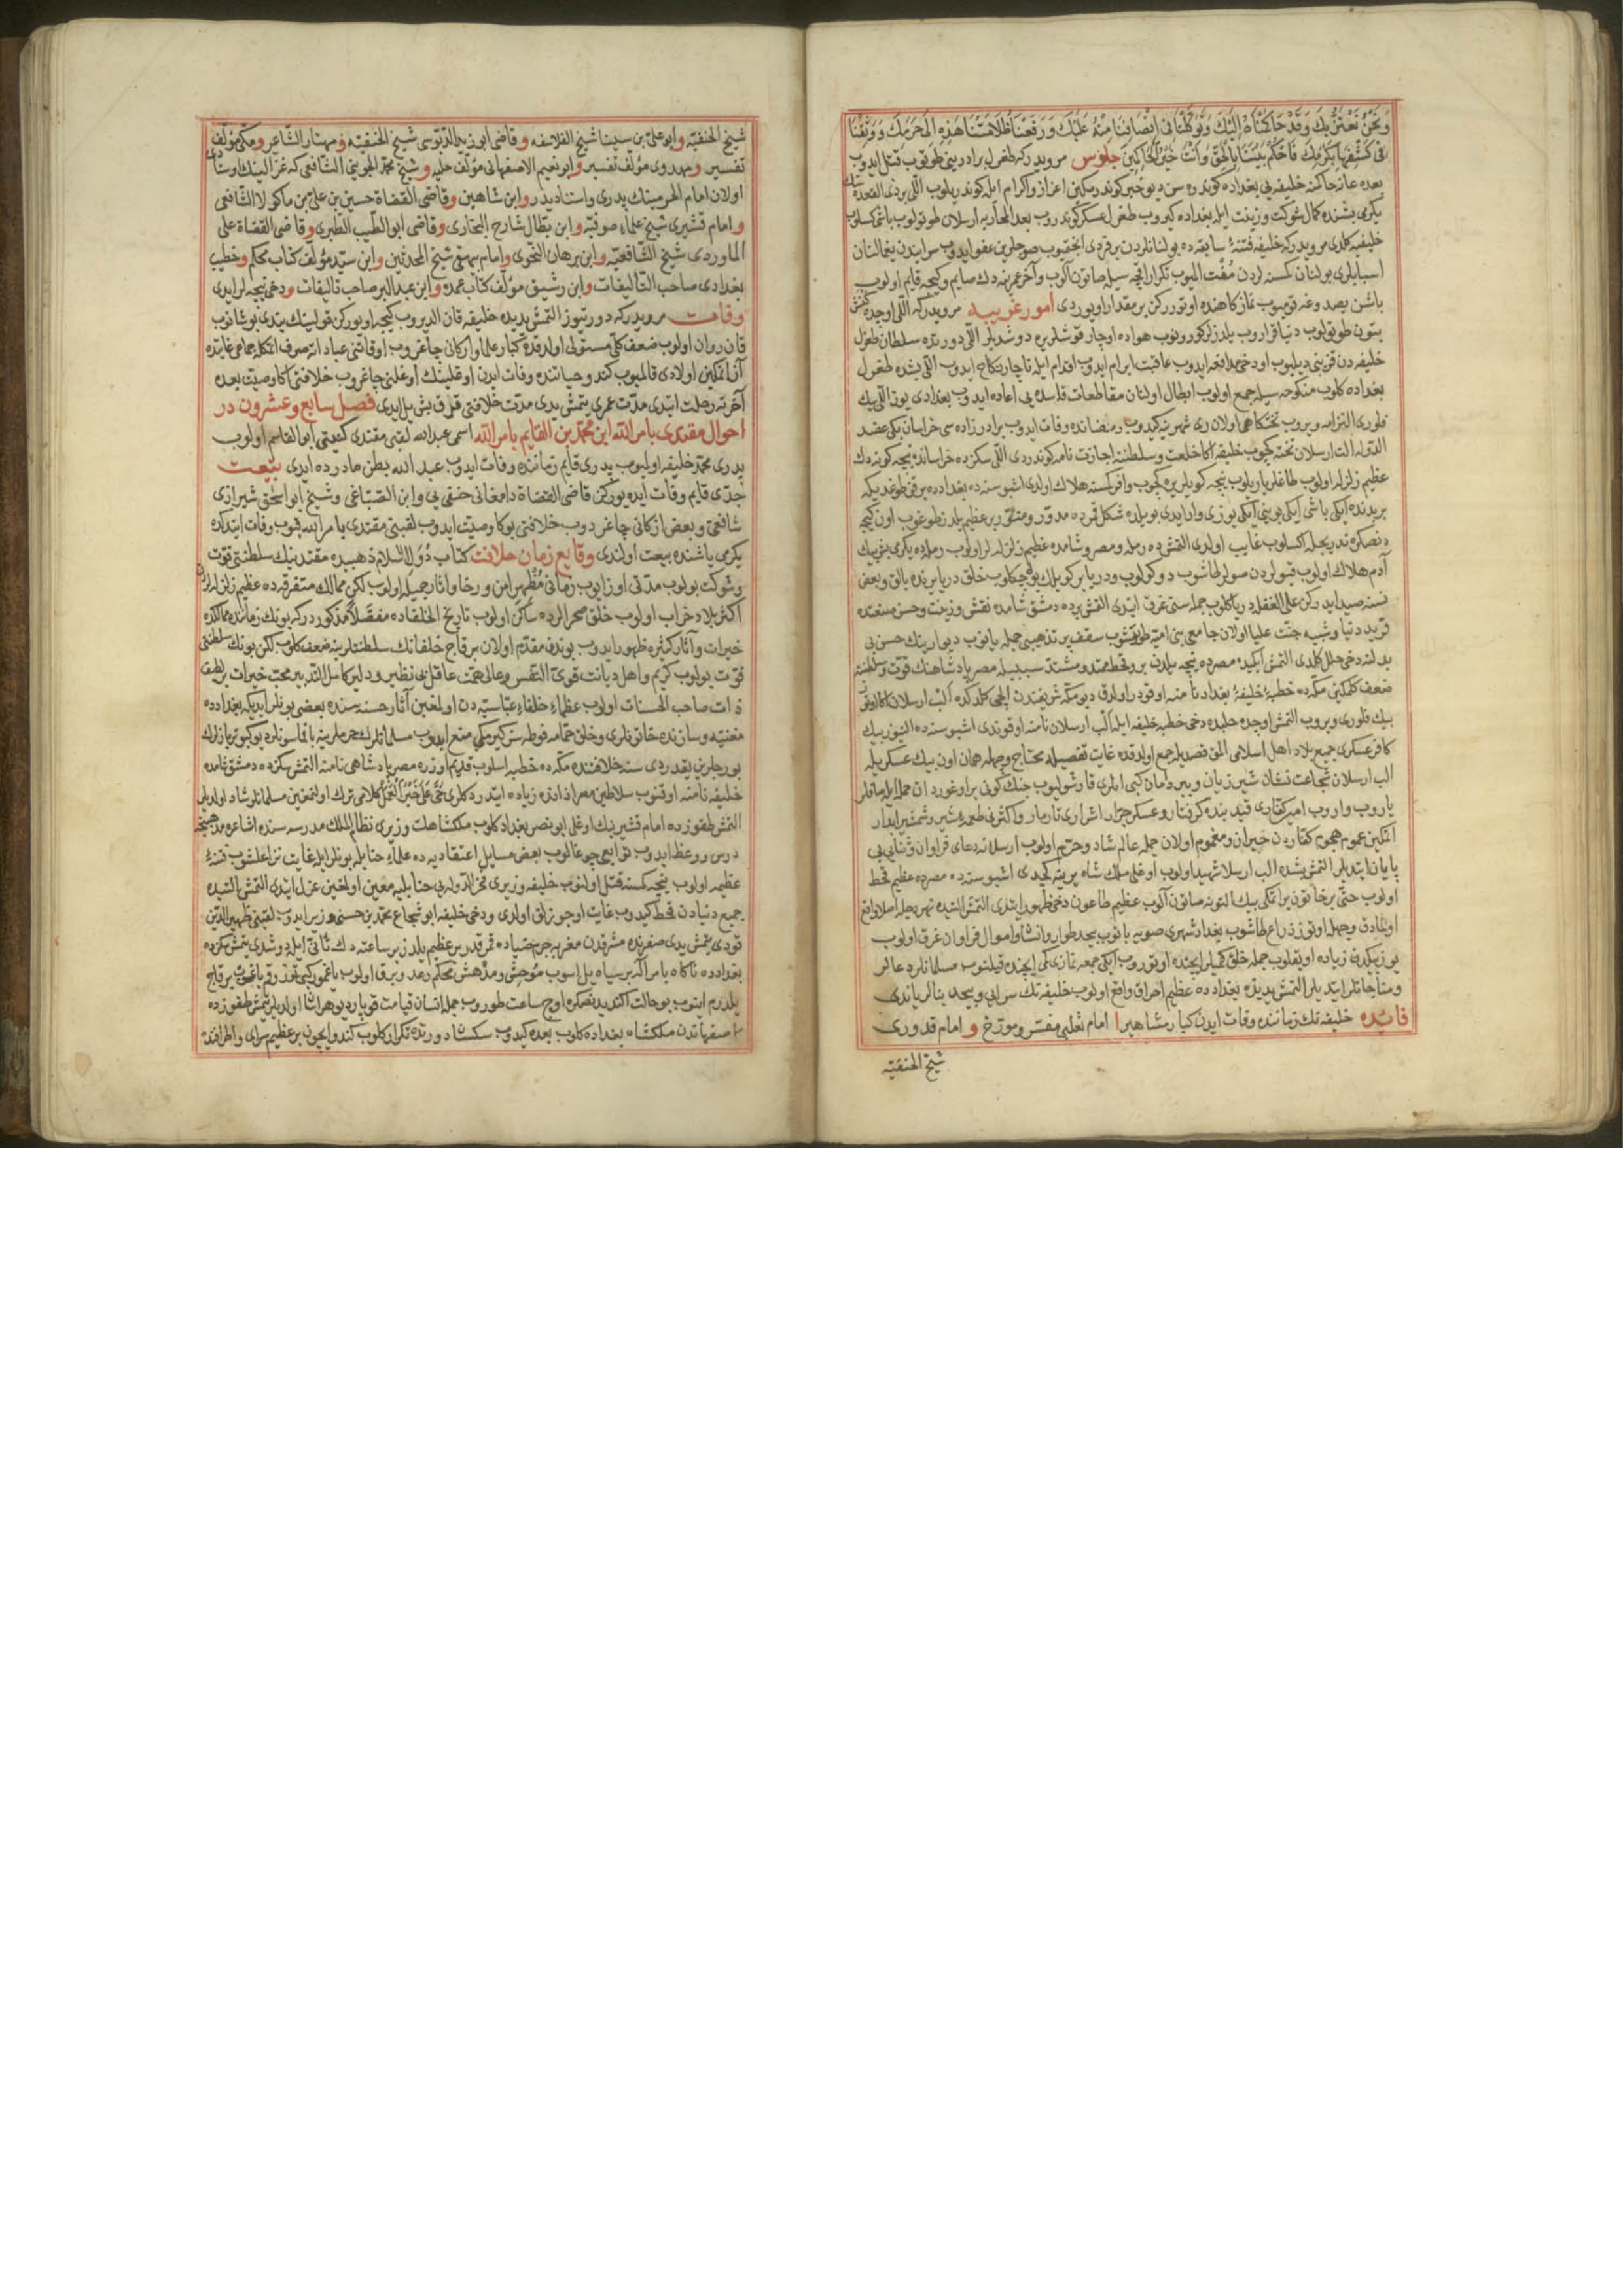 وَنَحْنُ نَعْتَزُّ بِكَ وَقَدْ حَاكَمْنَاهُ إِلَيْكَ وَتَوَكَّلْنَا فِي إِنْصَافِنَا مِنْهُ عَلَيْكَ وَرَفَعْنَا ظُلَامَتَنَا هَذِهِ إِلَى حَرَمِكَ وَوَثِقْنَا
فِي كَشْفِهَا بِكَرَمِكَ فَاحْكُمْ بَيْنَنَا بِالْحَقِّ وَأَنْتَ خَيْرُ الْحَاكِمِينَ جلوس مرویدر که طغرل برادرینی طوتوب قتل ایدوب
بعده خلیفه یی بغداده کوندره سن دیو خبر کوندرمکین اعزاز واکرام ایله کوندریلوب اللی بر ذی القعده
یکرمی بشنده کمال شوکت وزینت ایله بغداده کیروب طغرل عسکر کوندروب بعد المحاربه ارسلان طوتولوب باشی کسلوب
خلیفه کلدی مرویدر که خلیفه فتنهٔ سابقه ده بولنانلردن بر فردی انجتمیوب صوچلرین عفو ایدوب سرایندن یغما اولنان
اسبابلری بولنان کمسنه لردن مفت المیوب تکرار اقچه سیله صاتون آلوب وآخر عمرینه دک صایم و کیجه قایم اولوب
باشن یصدوغه قومیوب نمازکاهنده اوتورکن بر مقدار اویوردی امور غریبه مرویدر که اللی اوچده کنش
بتون طوتیلوب دنیا قراروب یلدزلر کورونوب هواده اوچار قوشلر یره دوشدیلر اللی دورتده سلطان طغرل
خلیفه دن قزینی دیلیوب اودخی مدافعه ایدوب عاقبت ابرام ایدوب اقدام ایله ناچار نکاح ایدوب اللی بشده طغرل
بغداده کلوب منکوحه سیله جمع اولوب ابطال اولنان مقاطعات فاسده یی اعاده ایدوب بغدادی یوز اللی بیک
فلوری التزامه ویروب تختکاهی اولان ری شهرینه کیدوب رمضانده وفات ایدوب برادرزاده سی خراسان بکی عضد
الدوله الب ارسلان تخته کچوب خلیفه اکا خلعت وسلطنته اجازت نامه کوندردی اللی سکزده خراسانده نیجه کونه دک
عظیم زلزله اولوب طاغلر یاریلوب نیجه کویلر یره کچوب وافر کمسنه هلاک اولدی اشبو سنه ده بغدادده بر قز طوغدی که
بر بدنده ایکی باشی ایکی بوینی ایکی یوزی وار ایدی بویلده شکل قمرده مدور ومنور بر عظیم یلدز طوغوب اون کیجه
دنصکره تدریجله اکسلوب غایب اولدی التمشده رمله ومصر وشامده عظیم زلزله لر اولوب رملده یکرمی بش بیک
آدم هلاک اولوب قیولردن صولر طاشوب دوکولوب ودریا بر کونلک یوله چکلوب خلق دریا یرنده بالق وبعض
نسنه صید ایدرکن علی الغفله دریا کلوب جمله سنی غرق ایتدی التمش برده دمشق شامده نقش وزینت وحسن صنعتده
فرید دنیا وشبیه جنت علیا اولان جامع بنی امیه طوتشوب سقف پر تذهیبی جمله یانوب دیوارینک حسن بی
بدلنه دخی خلل کلدی التمش ایکیده مصرده نیجه ییلدن برو قحط ممتد ومشتد سببیله مصر پادشاهنک قوت وسلطنتنه
ضعف کلمکین مکه ده خطبهٔ خلیفهٔ بغداد نامنه اوقودر اولدق دیو مکه شریفندن ایلچی کلدکده الب ارسلان اکا اوتوز
بیک فلوری ویروب التمش اوچده حلبده دخی خطبه خلیفه ایله الب ارسلان نامنه اوقوندی اشبو سنه ده ایکیوز بیک
کافر عسکری جمیع بلاد اهل اسلامی المق قصدیله جمع اولدقده غایت تفصیله محتاج وجهله همان اون بیک عسکریله
الب ارسلان شجاعت نشان شیر ژیان وببر دمان کبی انلری قارشولیوب جنک کونی
یاروب واروب امیر کفاری قید بنده کرفتار وعسکر جرار اشراری تارمار واکثرنی طعمهٔ شیر وشمشیر ایدر
اتمکین عموم هجوم کفاردن حیران ومغموم اولان جمله عالم شاد وخرم اولوب ارسلانه دعای فراوان وثنای بی
پایان ایتدیلر التمش بشده الب ارسلان شهید اولوب اوغلی ملک شاه یرینه کچدی اشبو سنه ده مصرده عظیم قحط
اولوب حتی بر خاتون بر اتمکی بیک التونه صاتون آلوب عظیم طاعون دخی ظهور ایتدی التمش التیده نهر دجله اصلا واقع
اولمادق وجهله اوتوز ذراع طاشوب بغداد شهری صویه باتوب بیحد طوار وانسان واموال فراوان غرق اولوب
یوز ییلدن زیاده اویقلوب جمله خلق کمیلر ایچنده اوتوروب ایکی جمعه نمازی کمی ایچنده قیلنوب مسلمانلر دعالر
ومناجاتلر ایتدیلر التمش یدیده بغدادده عظیم احراق واقع اولوب خلیفه نک سرایی وبیحد بنالر یاندی
فائده خلیفه نک زماننده وفات ایدن کبار مشاهیر امام ثعلبی مفسر ومورخ و امام قدوری
شیخ الحنفیه
شیخ الحنفیه وابوعلی بن سینا شیخ الفلاسفه وقاضی ابوزید الدبوسی شیخ الحنفیه ومهیار الشاعر ومکی مؤلف
تفسیر ومهدوی مؤلف تفسیر وابونعیم الاصفهانی مؤلف حلیه وشیخ محمد الجوینی الشافعی که غزالینک استادی
اولان امام الحرمینک پدری واستادیدر وابن شاهین وقاضی القضاة حسین بن علی بن ماکولا الشافعی
وامام قشیری شیخ علماء صوفیه وابن بطال شارح البخاری وقاضی ابوالطیب الطبری وقاضی القضاة علی
الماوردی شیخ الشافعیه وابن برهان النحوی وامام بیهقی شیخ المحدثین وابن سیده مؤلف کتاب محکم وخطیب
بغدادی صاحب التالیفات وابن رشیق مؤلف کتاب عمده وابن عبدالبر صاحب تالیفات ودخی نیجه لر ایدی
وفات مرویدر که دورتیوز التمش یدیده خلیفه قان الدیروب کیجه اویورکن قولینک بندی بوشانوب
قان روان اولوب ضعف کلی مستولی اولدقده کبار علما وارکانی چاغروب اوقاتنی عباداته صرف اتمکله جماعی غایتده
آز اتمکین اولادی قالمیوب کندو حیاتنده وفات ایدن اوغلینک اوغلنی چاغروب خلافتی اکا وصیت بعده
آخرته رحلت ایتدی مدت عمری یتمش یدی مدت خلافتی قرق بش ییل ایدی فصل سابع وعشرون در
احوال مقتدی بامرالله ابن محمد بن القایم بامرالله اسمی عبدالله لقبی مقتدی کنیتی ابوالقاسم اولوب
پدری محمد خلیفه اولمیوب پدری قایم زماننده وفات ایدوب عبدالله بطن مادرده ایدی بیعت
جدی قایم وفات ایده یورکن قاضی القضاة دامغانی حنفی یی وابن الصباغی وشیخ ابواسحق شیرازی
شافعی وبعض ارکانی چاغردوب خلافتی بوکا وصیت ایدوب لقبنی مقتدی بامرالله قیوب وفات ایتدکده
یکرمی یاشنده بیعت اولندی وقایع زمان خلافت کتاب دول الاسلام ذهبیده مقتدینک سلطنتی قوت
وشوکت بولوب مدتی اوزایوب زمانی مظهر امن ورخا واثار جمیله اولوب لکن ممالک متفرقه ده عظیم زلزله لردن
اکثر بلاد خراب اولوب خلق صحرالرده ساکن اولوب تاریخ الخلفاده مفصلا مذکوردر که بونک زماننده ممالکده
خیرات وآثار کثیره ظهور ایدوب بوندن مقدم اولان بر قاچ خلفانک سلطنتلرینه ضعف کلوب لکن بونک سلطنتی
قوت بولوب کریم واهل دیانت قوی النفس وعالی همت عاقل بی نظیر ودلیر کامل التدبیر محب خیرات بر لطیف
ذات صاحب الحسنات اولوب عظماء خلفاء عباسیه دن اولمغین آثار حسنه سنده بعضی بونلر ایدیکه بغدادده
مغنیه وسازنده خاتونلری وخلق حمامه فوطه سز کیرمکی منع ایدوب مسلمانلرک حرملرینه باقماسونلر دیو کبوتربازلرک
بورجلرین یقدردی سنهٔ خلافتنده مکه ده خطبه اسلوب قدیم اوزره مصر پادشاهی نامنه التمش سکزده دمشق شامده
خلیفه نامنه اوقنوب سلاطین مصر اذانده زیاده ایتدردکلری حَیَّ عَلَى خَیْرِ الْعَمَلِ کلامی ترک اولنمغین مسلمانلر شاد اولدیلر
التمش طقوزده امام قشیرینک اوغلی ابونصر بغداد کلوب ملکشاهک وزیری نظام الملک مدرسه سنده اشاعره مذهبنجه
درس ووعظ ایدوب توابعی چوغالوب بعض مسایل اعتقادیه ده علماء حنابله بونلر ایله غایت نزاعلشوب فتنهٔ
عظیمه اولوب نیجه کمسنه قتل اولنوب خلیفه وزیری فخرالدوله یی حنابلیه معین اولمغین عزل ایتدی التمش التیده
جمیع دنیادن قحط کیدوب غایت اوجوزلق اولدی ودخی خلیفه ابوشجاع محمد بن حسنی وزیر ایدوب لقبنی ظهیر الدین
قودی یتمش یدی صفرنده مشرقدن مغربه جرم ضیاده قمر قدر بر عظیم یلدز بر ساعته دک ثانی ایله دوشدی یتمش سکزده
بغدادده ناکاه بامرالله بر سیاه ییل اسوب موحش ومدهش محکم رعد وبرق اولوب یاغمور کبی توز وطپراق یاغوب بر قاچ
یلدرم اینوب بو حالت اکندیدنصکره اوچ ساعت طوروب جمله انسان قیامت قوپار دیو هراسان اولدیلر یتمش طقوزده
اصفهاندن ملکشاه بغداده کلوب بعده کیدوب سکسان دورتده تکرار کلوب کندو ایچون بر عظیم سرای واطرافنه